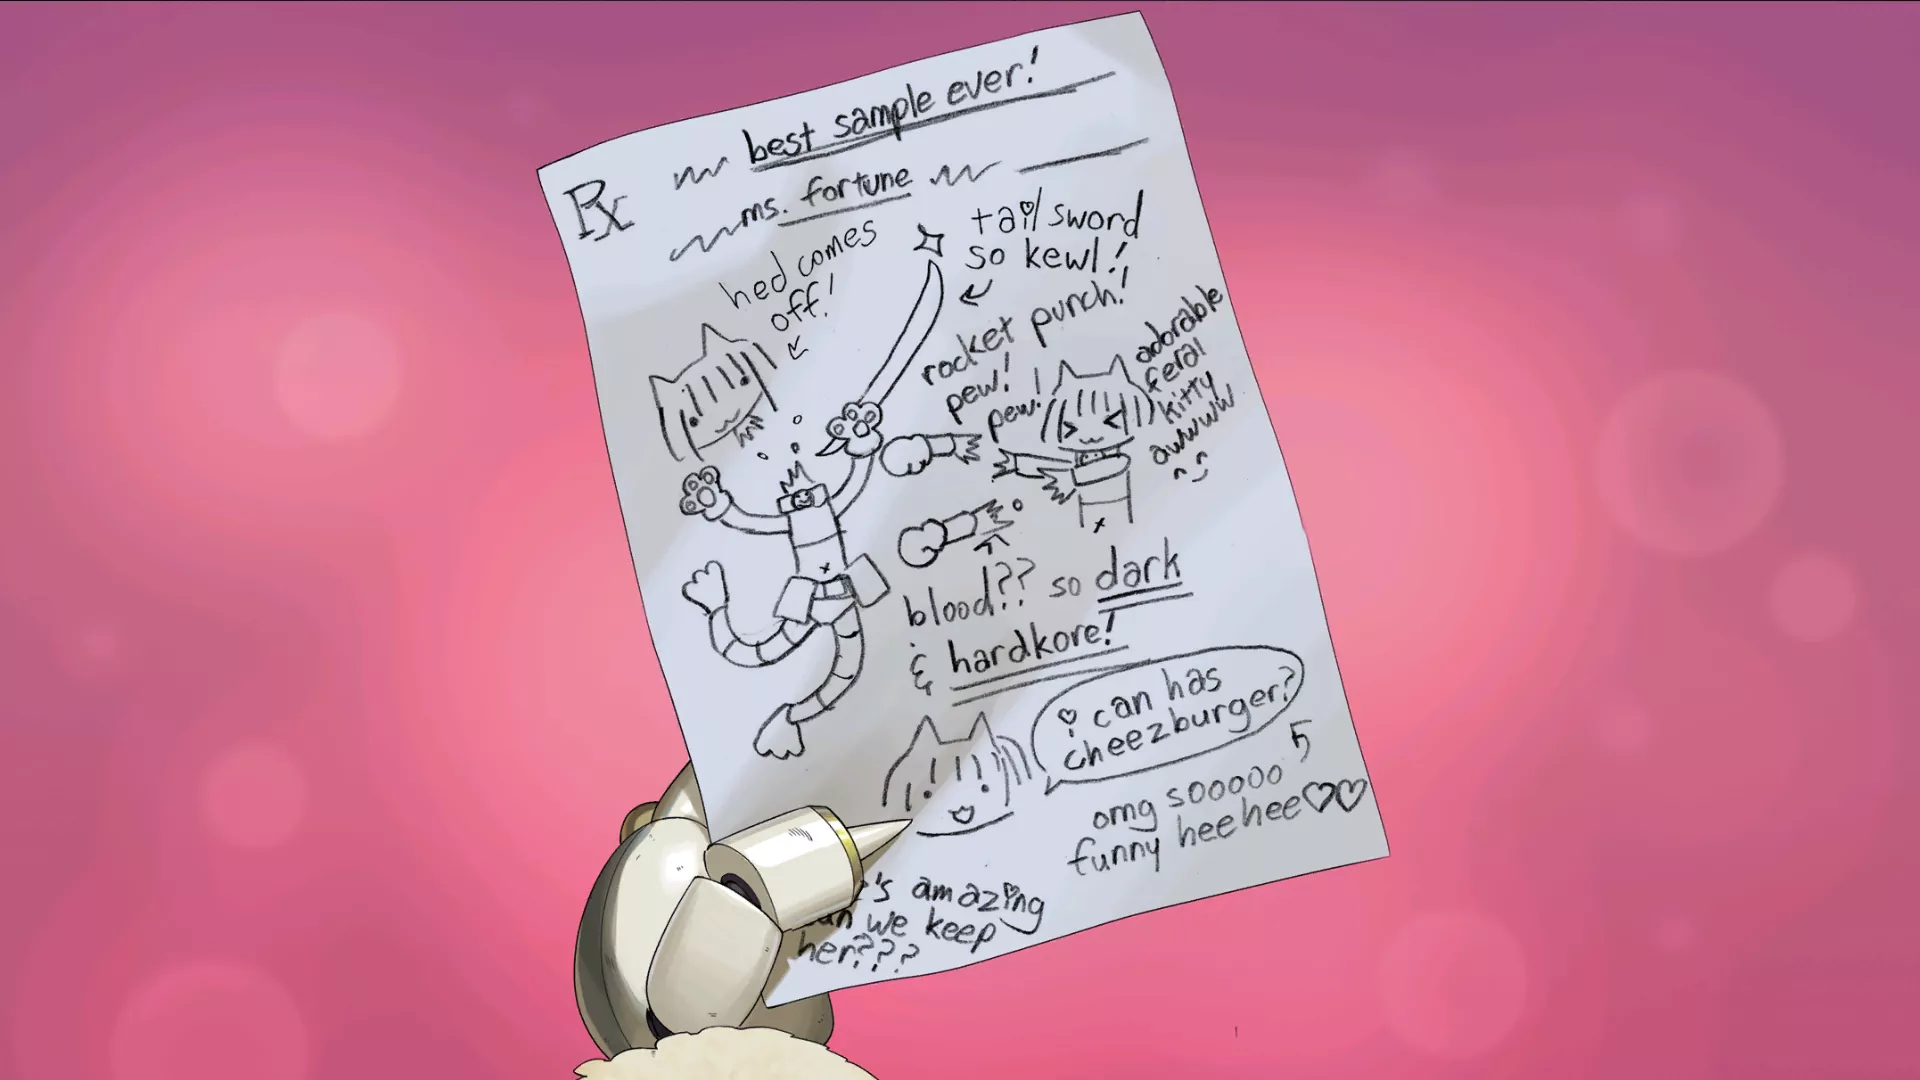 best sample ever!
Rx
ms. fortune
hed comes
off!
tail sword
so kewl!
rocket punch!
pew!
pew!
adorable
feral
kitty
awwww
blood?? so dark
& hardkore!
i can has
cheezburger?
omg sooooo
funny heehee♡♡
's amazing
we keep
her???